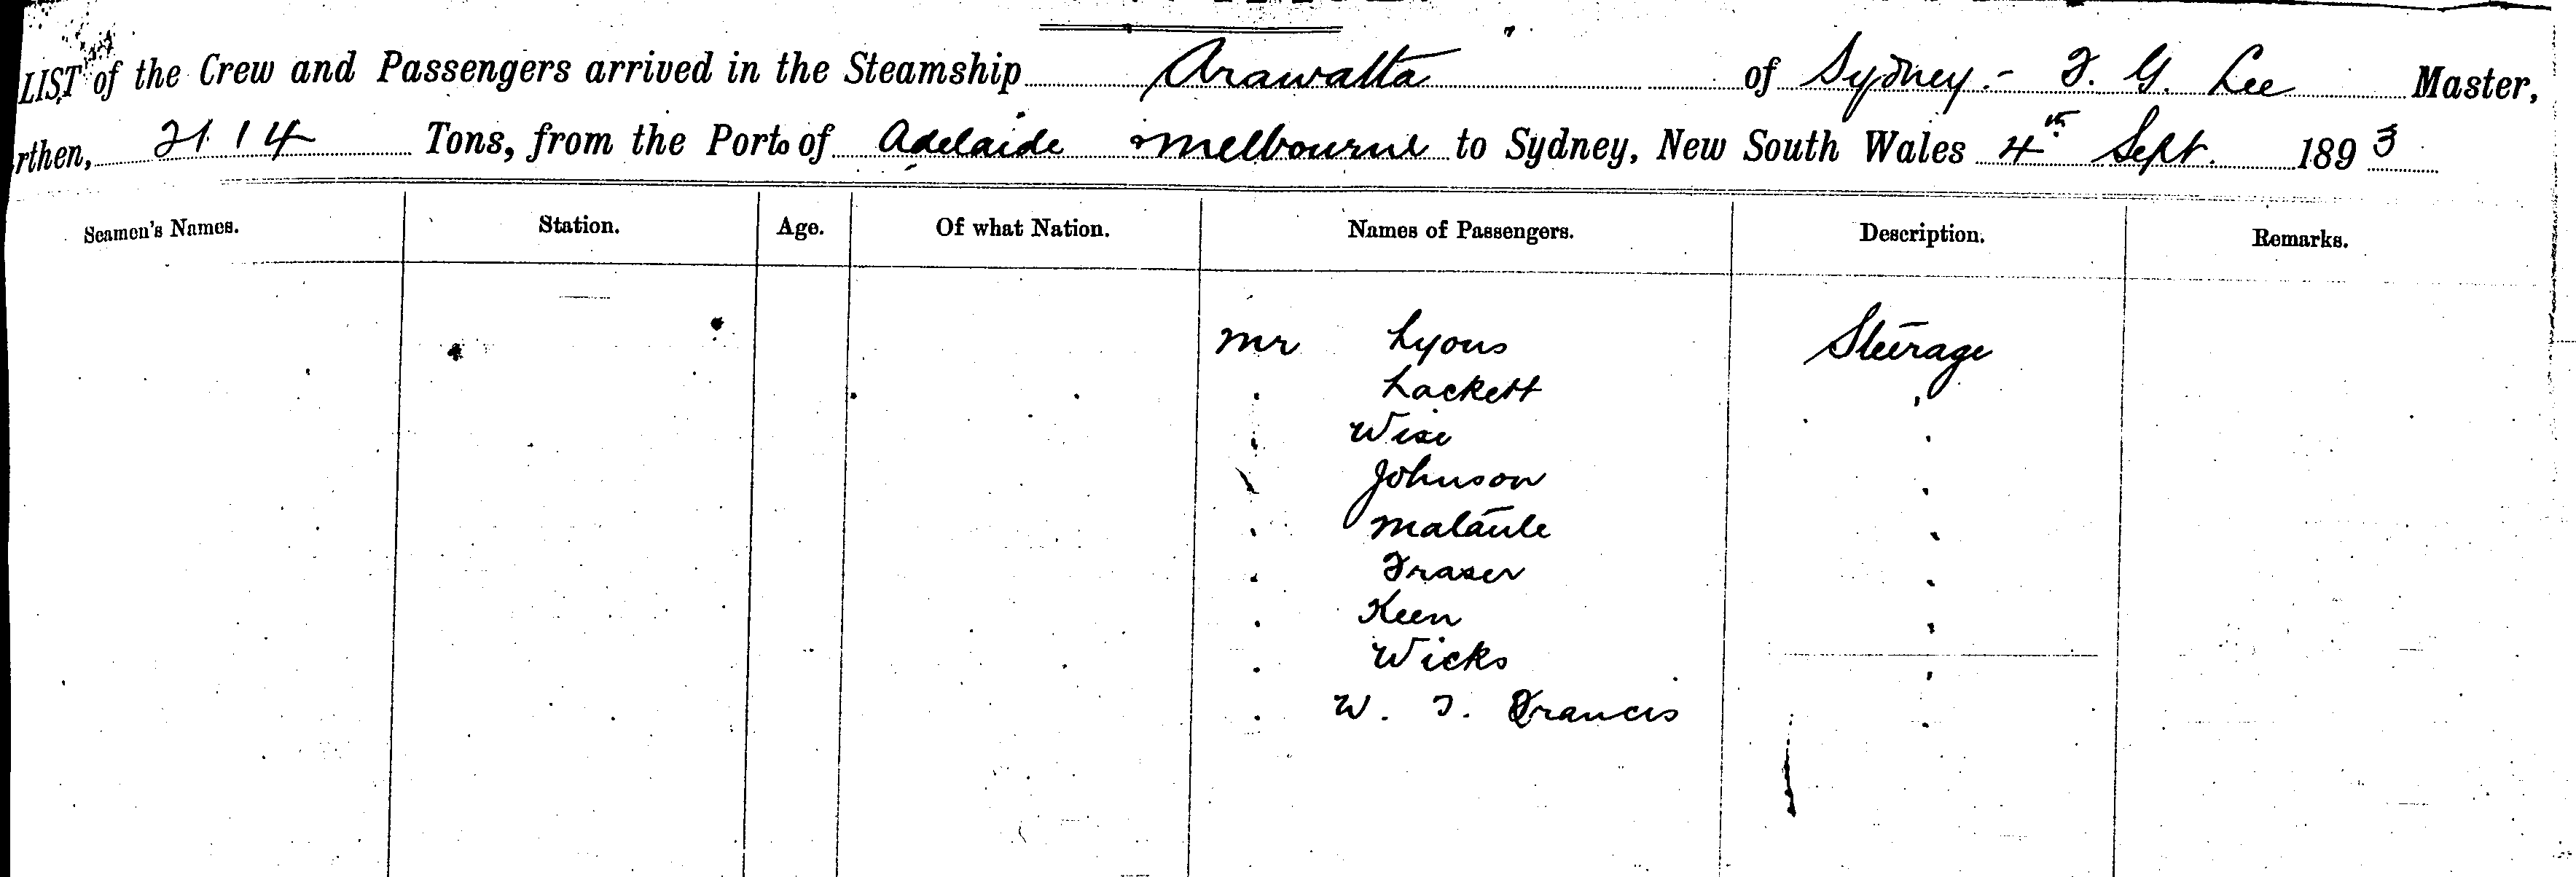 LIST of the Crew and Passengers arrived in the Steamship Arawatta of Sydney - F. G. Lee Master,
rthen, 2114 Tons, from the Port of Adelaide Melbourne to Sydney, New South Wales 4th Sept. 1893
Seamen's Names. Station. Age. Of what Nation. Names of Passengers. Description. Remarks.
Mr Lyons Steerage
Lackett
Wise
Johnson
Fraser
Keen
Wicks
W. T. Francis